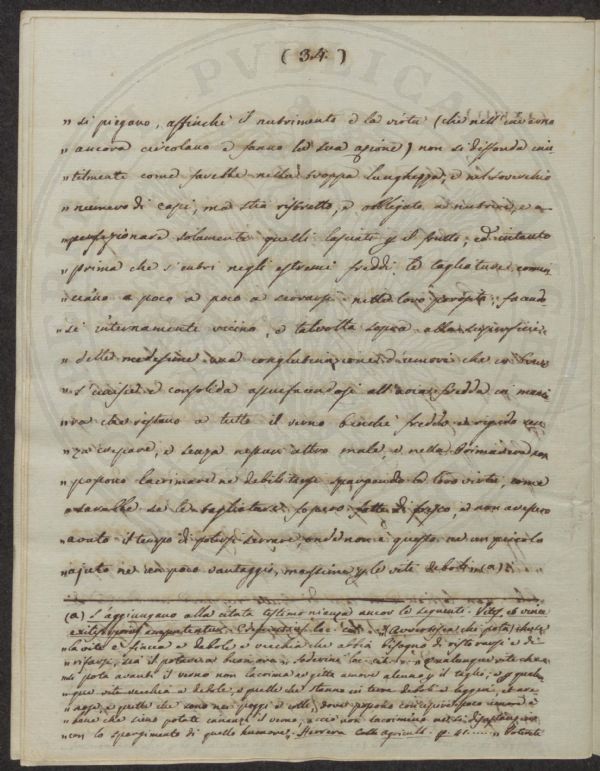 ( 34 )
„ si piegano, affinchè il nutrimento e la virtù (che nell' inverno
„ ancora circolano e fanno la sua azione) non si diffonda inu
„ tilmente come farebbe nella troppa lunghezza, e nel soverchio
„ numero di capi, ma stia ristretto, e obbligato a nutrire, e a
„ perfezionare solamente quelli lasciati p il frutto; ed intanto
„ prima che s'entri negli estremi freddi, le tagliature comin
„ ciano a poco a poco a serrarsi nelle loro porosità, facendo
„ si internamente vicino, e talvolta sopra alla superficie
„ delle medesime una conglutinazione d'umore che
„ s'unisce e consolida assuefacendosi all'aria fredda in manie
„ ra che restano a tutto il verno benchè freddo, e rigido sen
„ za crepare, e senza nessun altro male, e nella Primavera non
„ possono lacrimare ne debolitarsi spargendo la loro virtù, come
„ farebbe se le tagliature fossero fatte di fresco, e non avessero
„ avuto il tempo di potersi serrare, onde non è questo ne un piccolo
„ ajuto ne un poco vantaggio, massime p le vite deboli (a)
(a) S'aggiungano alla citata testimonianza ancor le seguenti.
loc. cit. (Avvertisca che pota) che se
„ la vite è fiacca e debole, o vecchia che abbia bisogno di ristorarsi e di
„ rifarsi, sia il potarla buon'ora. Soderini loc. cit. Qualunque vite che
„ si pota avanti il verno non lacrima e gitta umore alcuno p il taglio, e p quelo
„ que vite vecchia e debole, e quelle che stanno in terre deboli e leggieri, ed are
„ nose, e quelle che sono nei poggi e colli, dove possono
„ bene che sieno potate innanzi il verno, acciò non lacrimino nè si
„ con lo spargimento di quello humore. Herrera Colt. Agricult. p. 41...... „ Potente